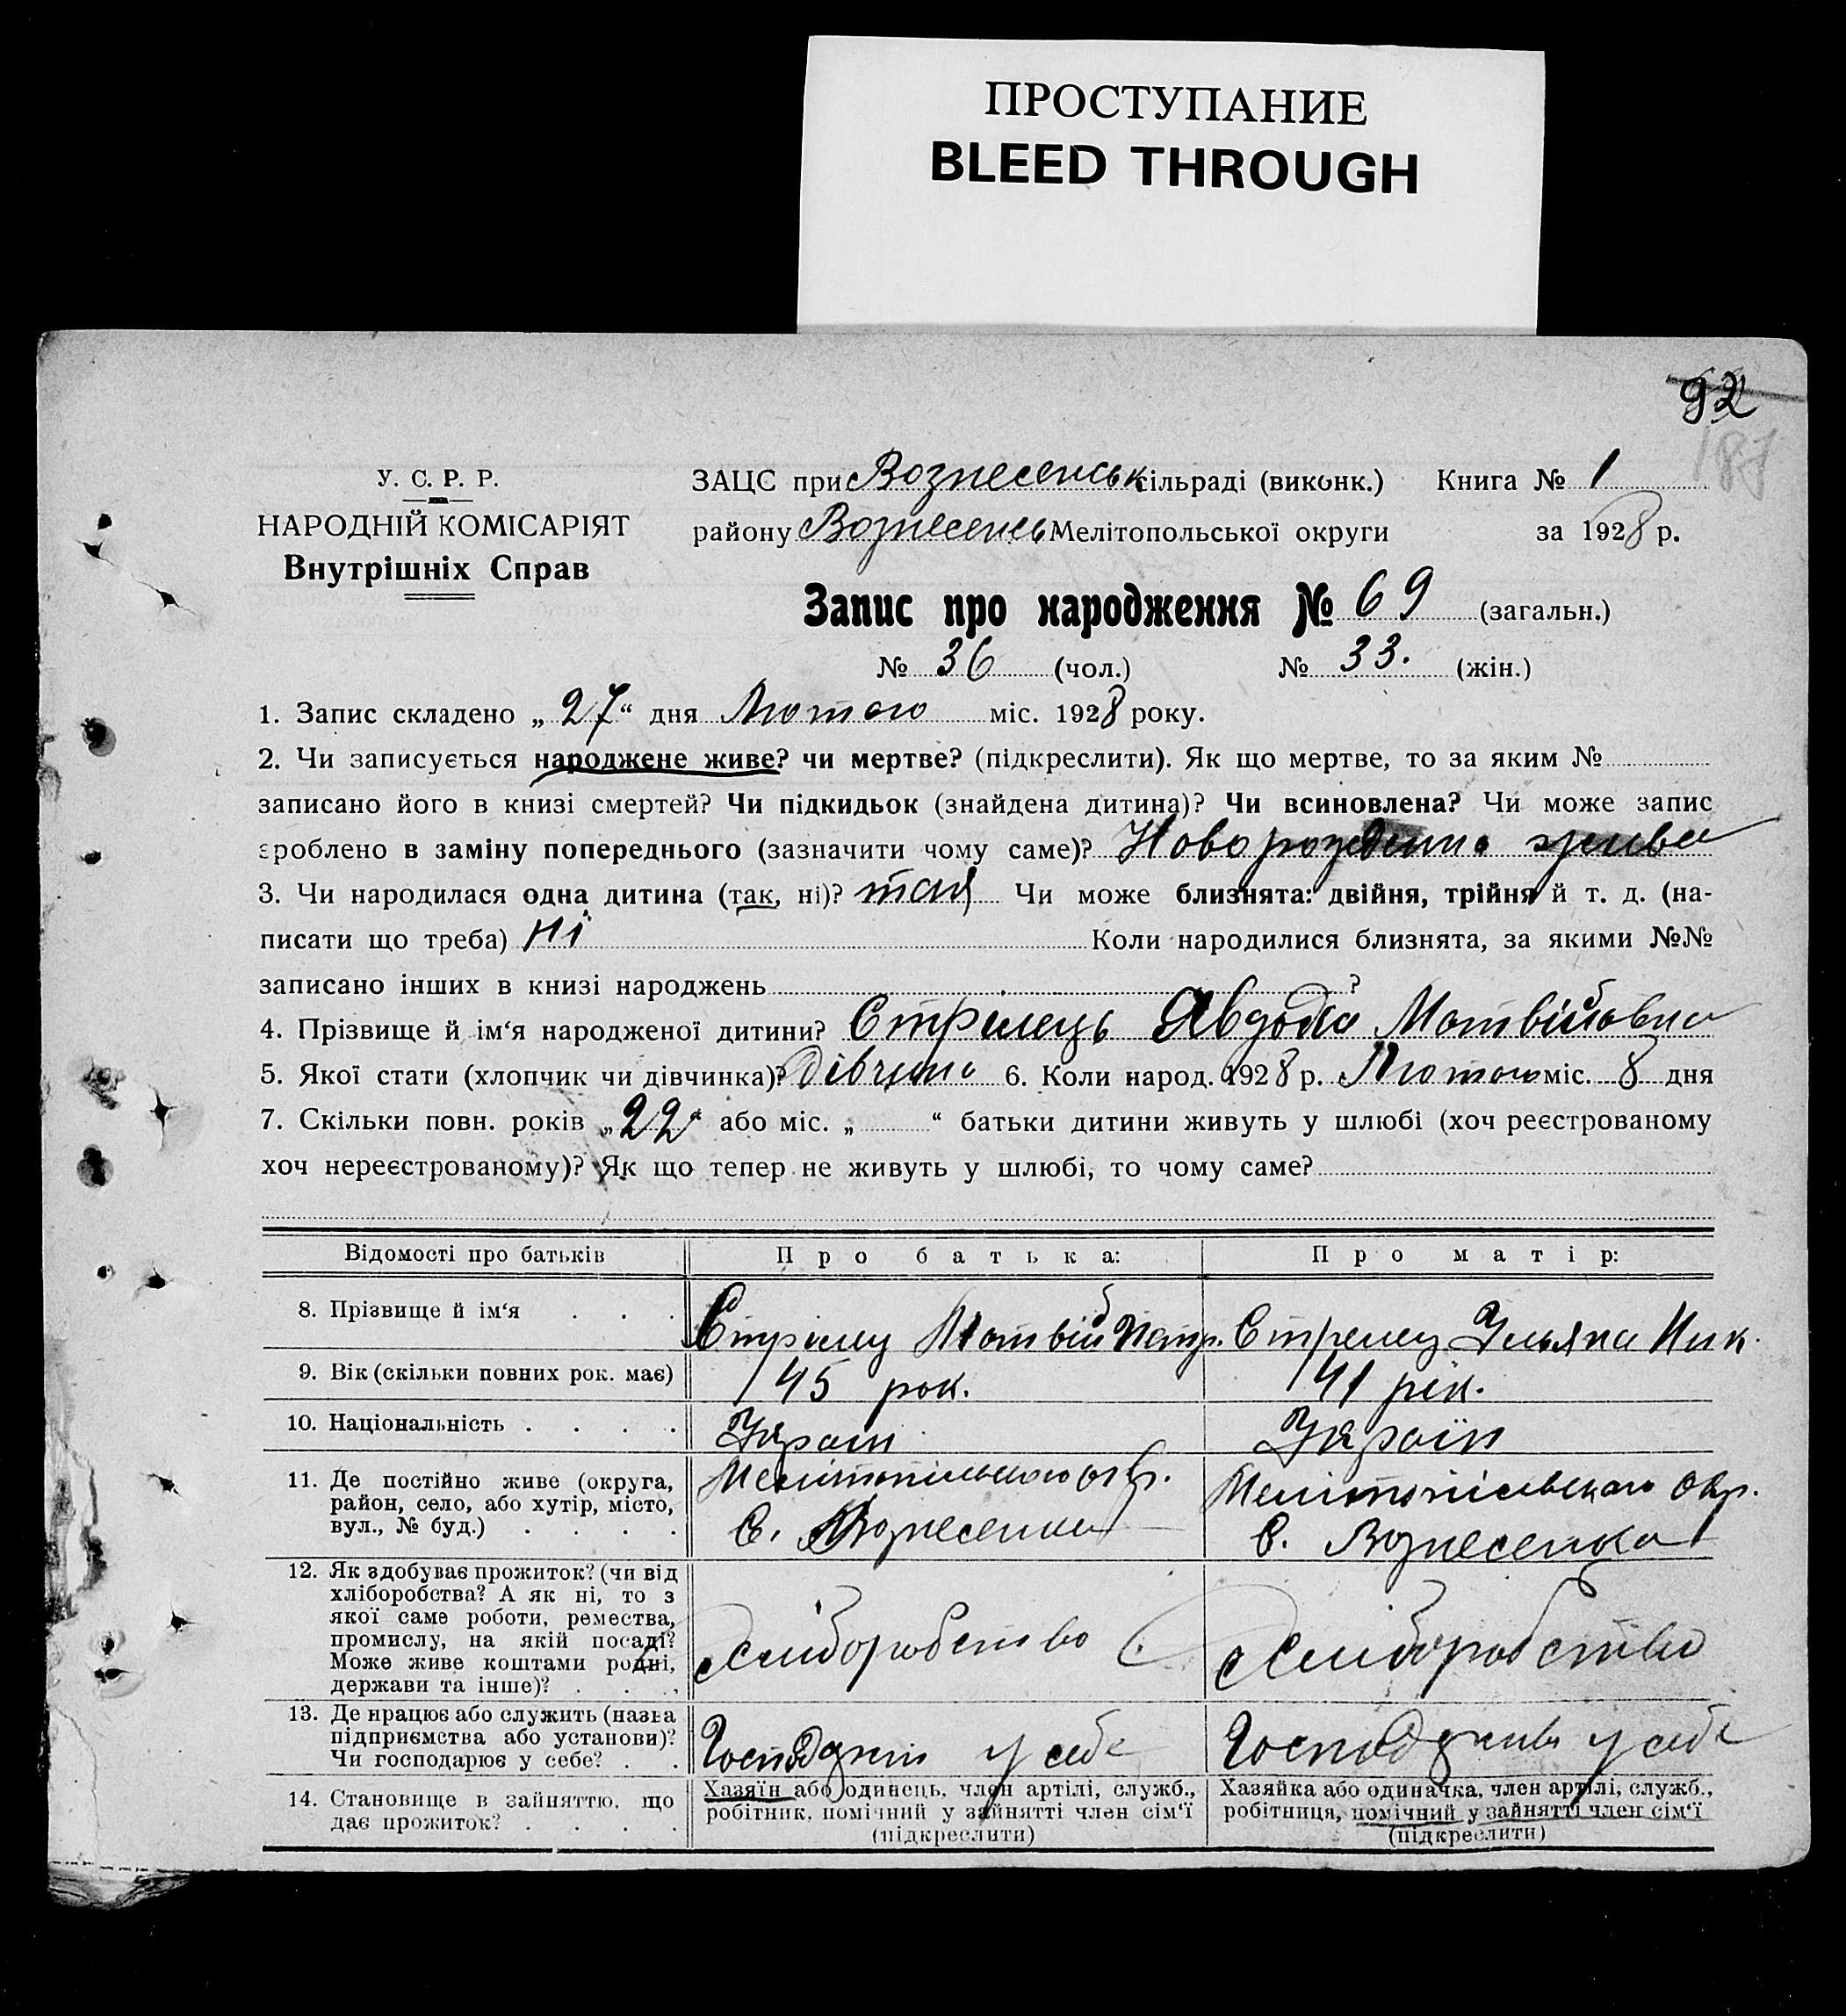 ПРОСТУПАНИЕ
BLEED THROUGH
92
187
У. С. Р. Р.
НАРОДНІЙ КОМІСАРІЯТ
Внутрішніх Справ
ЗАЦС при Вознесенськ сільраді (виконк.) Книга № 1
району Вознесенсь Мелітопольської округи за 1928 р.
Запис про народження № 69 (загальн.)
№ 36 (чол.) № 33. (жін.)
1. Запис складено „ 27 “ дня Лютого міс. 1928 року.
2. Чи записується народжене живе? чи мертве? (підкреслити). Як що мертве, то за яким №
записано його в книзі смертей? Чи підкидьок (знайдена дитина)? Чи всиновлена? Чи може запис
зроблено в заміну попереднього (зазначити чому саме)? Новорожденна жива
3. Чи народилася одна дитина (так, ні)? так Чи може близнята: двійня, трійня й т. д. (на-
писати що треба) ні Коли народилися близнята, за якими №№
записано інших в книзі народжень ?
4. Прізвище й ім‘я народженої дитини? Стрилець Явдоха Матвійовна
5. Якої стати (хлопчик чи дівчинка)? дівчина 6. Коли народ. 1928 р. Лютого міс. 8 дня
7. Скільки повн. років „ 22 “ або міс. „ “ батьки дитини живуть у шлюбі (хоч реєстрованому
хоч нереєстрованому)? Як що тепер не живуть у шлюбі, то чому саме?
Відомості про батьків Про батька: Про матір:
8. Прізвище й ім‘я . . . Стрілец Матвій Петр. Стрелец Ульяна Ник.
9. Вік (скільки повних рок. має) 45 рок. 41 рік.
10. Національність . . . . Україн Україн
11. Де постійно живе (округа,
район, село, або хутір, місто,
вул., № буд.) . . . .
Мелітопільського окр.
С. Вознесенка
Мелітопільського Окр.
С. Вознесенка
12. Як здобуває прожиток? (чи від
хліборобства? А як ні, то з
якої саме роботи, ремества,
промислу, на якій посаді?
Може живе коштами родні,
держави та інше)? . . .
Хліборобство
Хліборобство
13. Де працює або служить (назва
підприємства або установи)?
Чи господарює у себе? . .
у себе
у себе
14. Становище в зайняттю, що
дає прожиток? . . . .
Хазяїн або одинець, член артілі, служб.,
робітник, помічний у зайнятті член сім‘ї
(підкреслити)
Хазяйка або одиначка, член артілі, служб.,
робітниця, помічний у зайнятті член сім‘ї
(підкреслити)